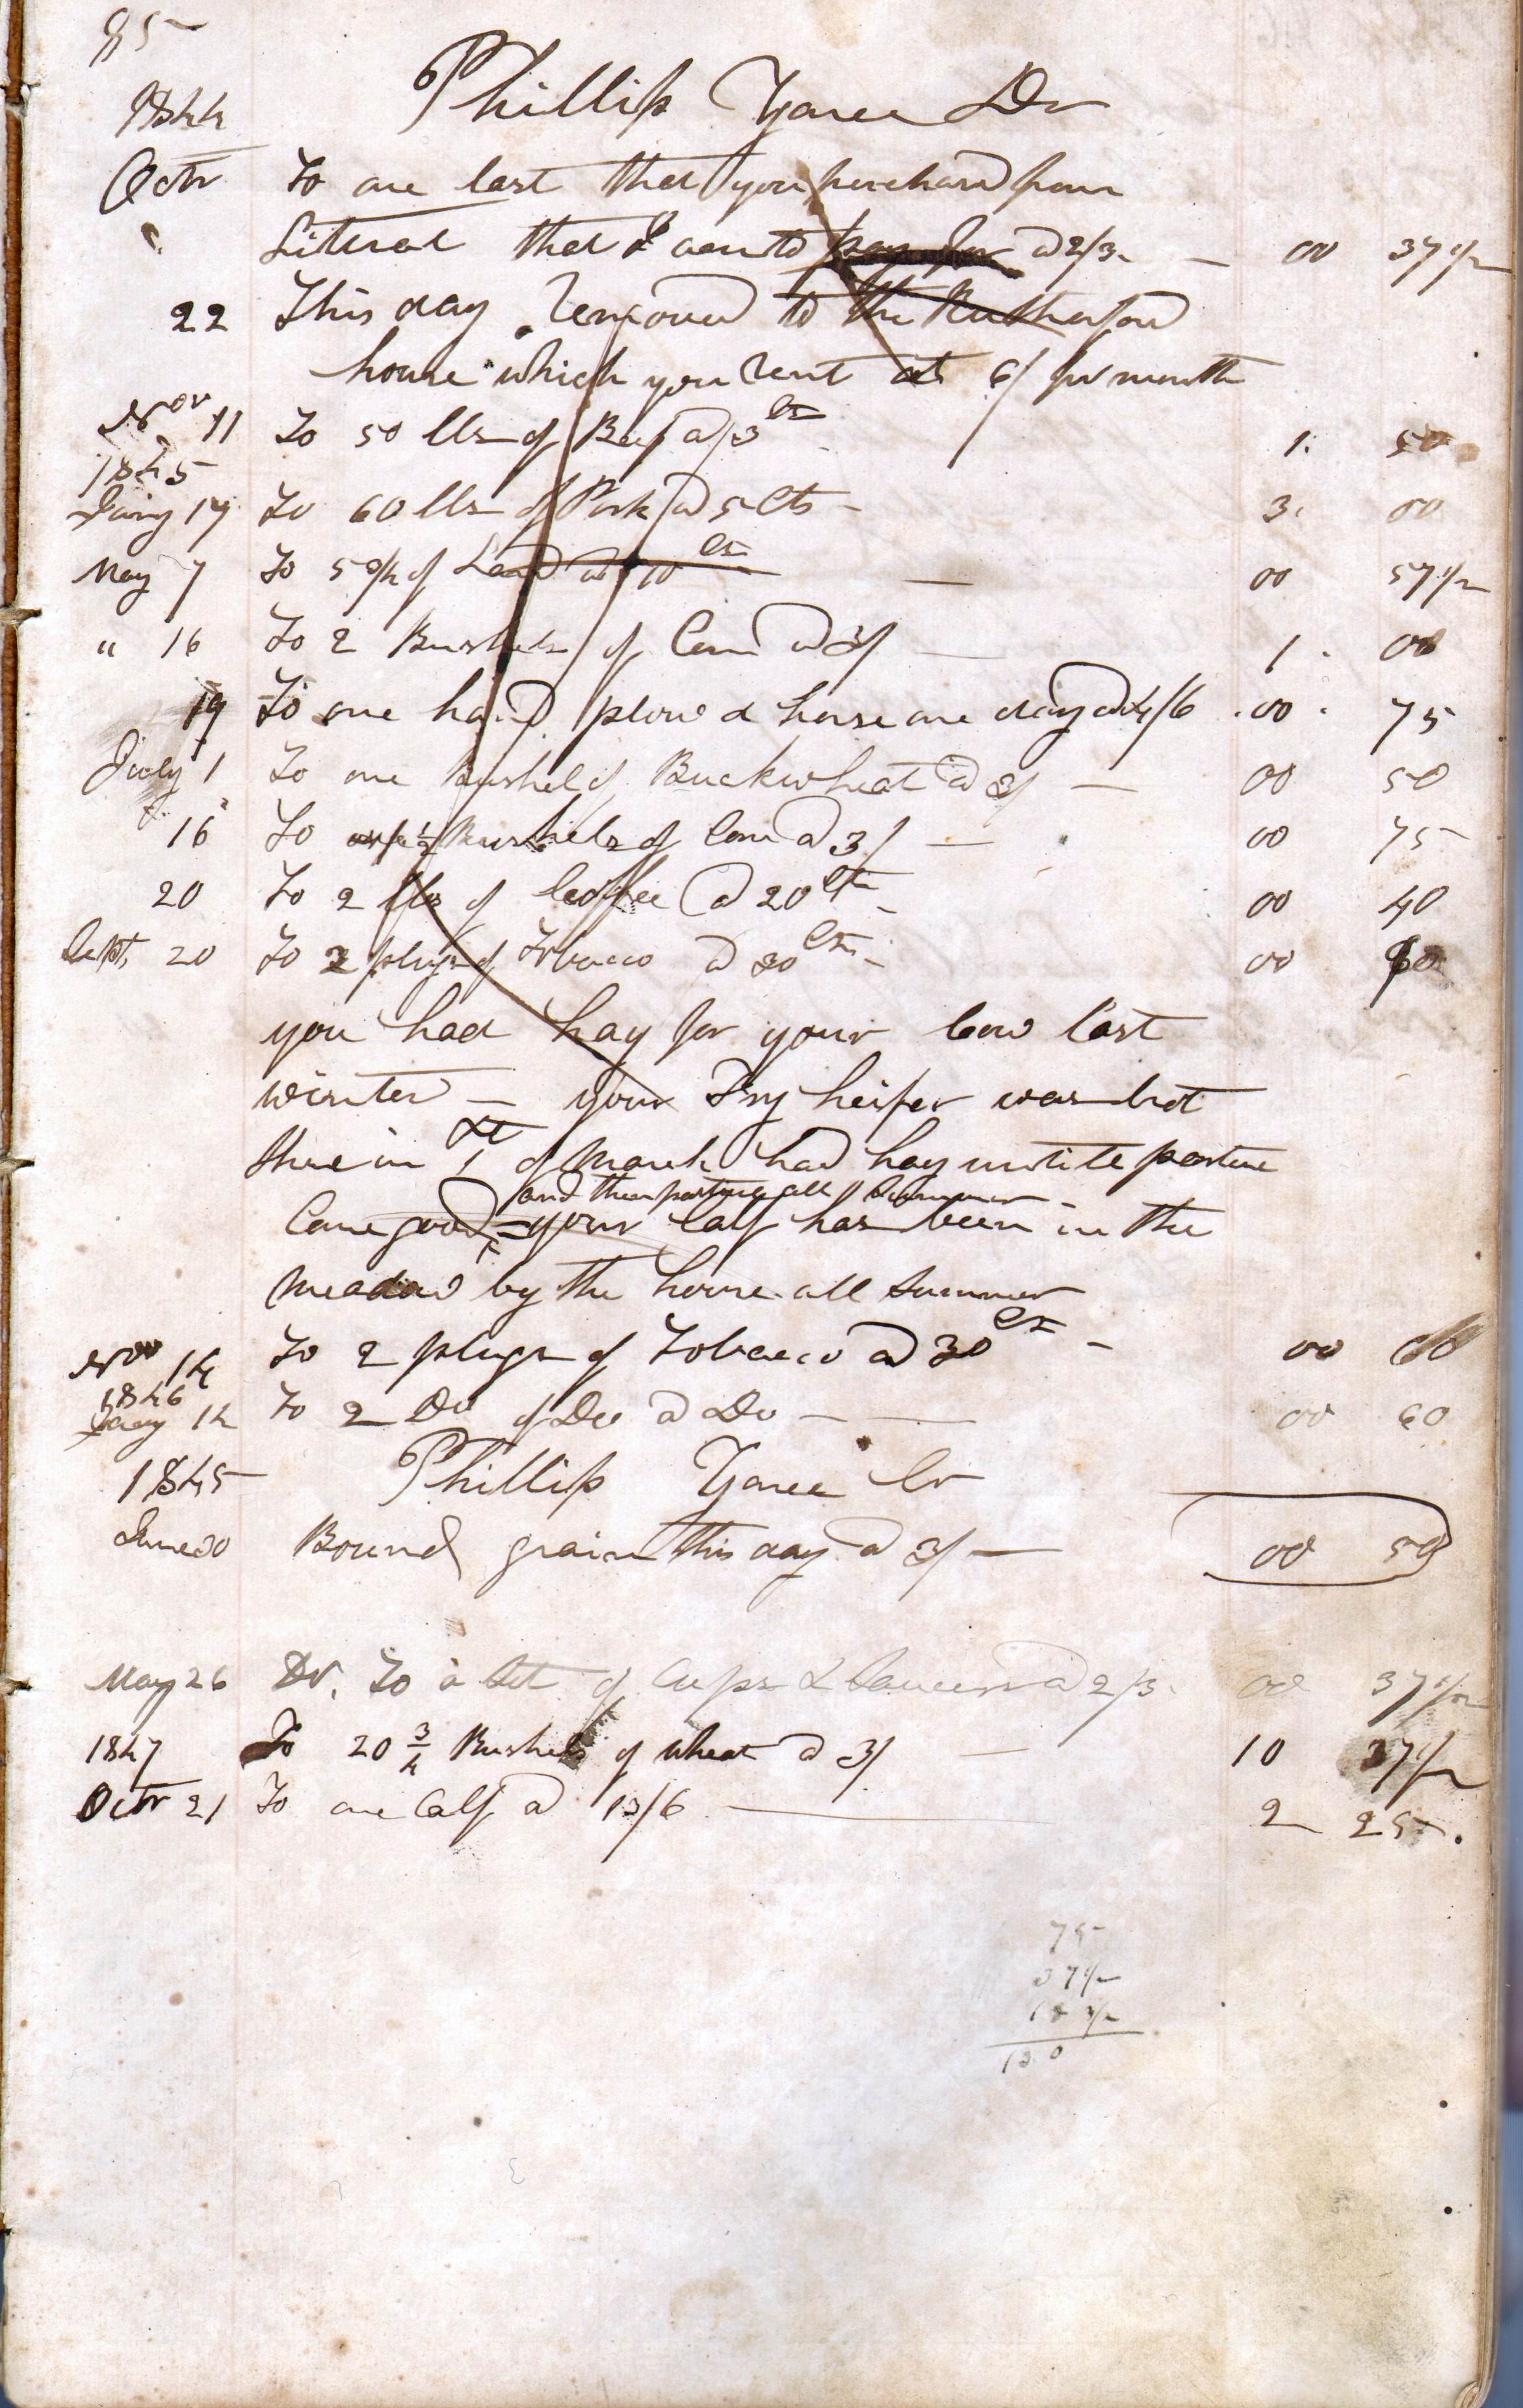 85
1844 Phillip Yanee Dr
Octr To one last that you purchasd from
that I am to pay for @ 2/3. 00 37 1/2
22 This day removed to the Rutherford
house which you rent at 6/ per month
Novr 11 To 50 lbs of Beef @ 3 Cts 1. 50
1845
Jany 17 To 60 lbs of Pork @ 5 Cts 3. 00
May 7 To 5 of @ 10 Cts 00 57 1/2
" 16 To 2 Bushels of Corn @ 3/ 1. 00
19 To one hand plow & horse one day @ 4/6 .00. 75
July 1 To one Bushel of Buckwheat @ 3/ 00 50
16 To 1/2 Bushels of Corn @ 3/ 00 75
20 To 2 lbs of Coffee @ 20 Cts 00 40
Sept. 20 To 2 plugs of Tobacco @ 30 Cts 00 60
you had hay for your Cow last
winter – your Dry heifer was but
thre in 1st of March had hay untile pasture
and then pasture all Summer
Came good – your Calf has been in the
meadow by the house all Summer
Nov 14 To 2 plugs of Tobacco @ 30 Cts 00 60
1846
Jany 14 To 2 Do of Do @ Do 00 60
1845 Phillip Yanee Cr
June 20 Bound grain this day @ 3/ 00 50
May 26 Dr. To a Set of Cups & Saucers @ 2/3. 00 37 1/2
1847 To 20 3/4 Bushels of wheat @ 3/ 10 37 1/2
Octr 21 To one Calf @ 13/6 2 25.
75
37 1/2